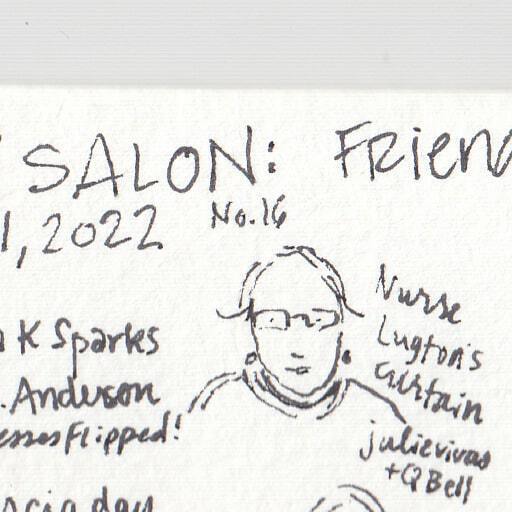 SALON: Frien
1, 2022 No.16
K Sparks
. Anderson
esses Flipped!
Nurse
Lugton's
curtain
julievivas
+ Q Bell
day